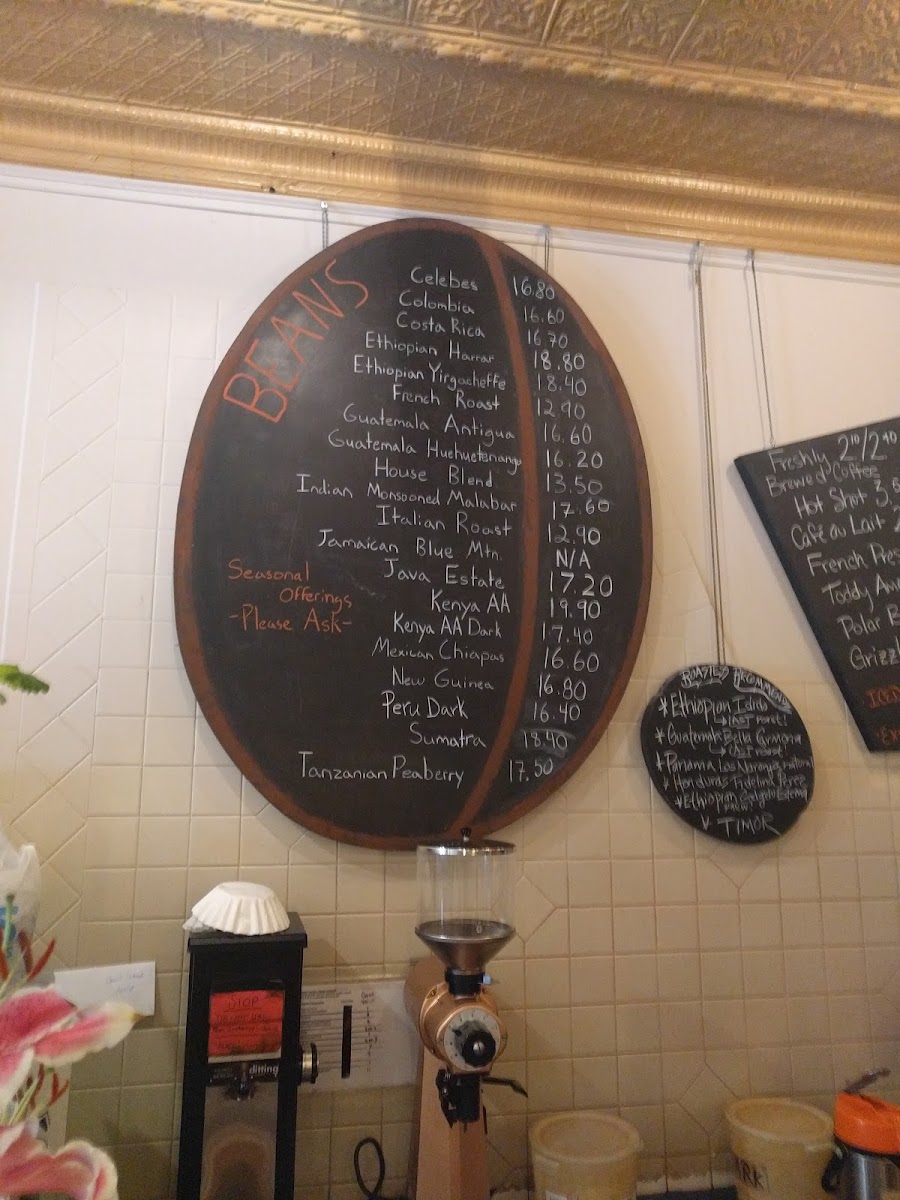 BEANS
Celebes 16.80
Colombia 16.60
Costa Rica 16.70
Ethiopian Harrar 18.80
Ethiopian Yirgacheffe 18.40
French Roast 12.90
Guatemala Antigua 16.60
Guatemala Huehuetenango 16.20
House Blend 13.50
Indian Monsooned Malabar 17.60
Italian Roast 12.90
Jamaican Blue Mtn. N/A
Java Estate 17.20
Kenya AA 19.90
Kenya AA Dark 17.40
Mexican Chiapas 16.60
New Guinea 16.80
Peru Dark 16.40
Sumatra 18.40
Tanzanian Peaberry 17.50
Seasonal
Offerings
-Please Ask-
Freshly 2¹⁰/2⁴⁰
Brewed Coffee
Hot Shot 3.
Café au Lait
French Pres
Toddy
Polar B
Grizzl
ICED
Ethiopian Idido
Guatemala Bella
Panama Las
Honduras
Ethiopian
TIMOR
STOP
ditting